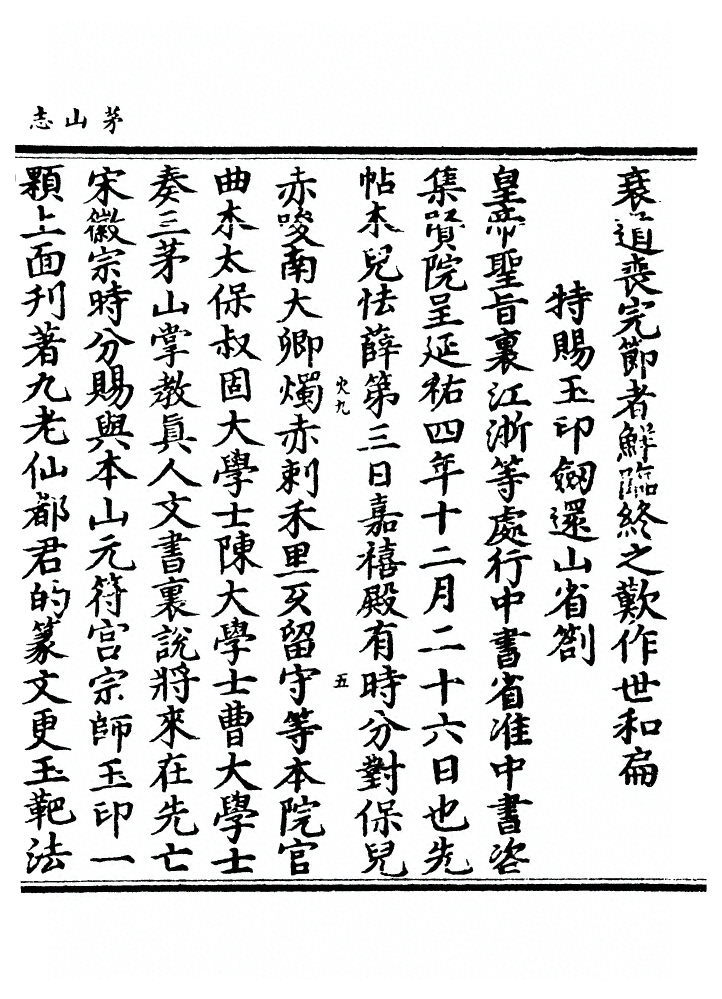 茅山志
衰道喪完節者鮮臨終之歎作世和扁
特賜玉印劒還山省劄
皇帝聖旨裏江浙等處行中書省准中書咨
集賢院呈延祐四年十二月二十六日也先
帖木兒怯薛第三日嘉禧殿有時分對保兒
火九
五
赤唆南大卿燭赤剌禾里㕛留守等本院官
曲朩太保叔固大學士陳大學士曹大學士
奏三茅山掌教眞人文書裏說將來在先亡
宋徽宗時分賜與本山元符宫宗師玉印一
顆上面刋著九老仙都君的篆文更玉靶法